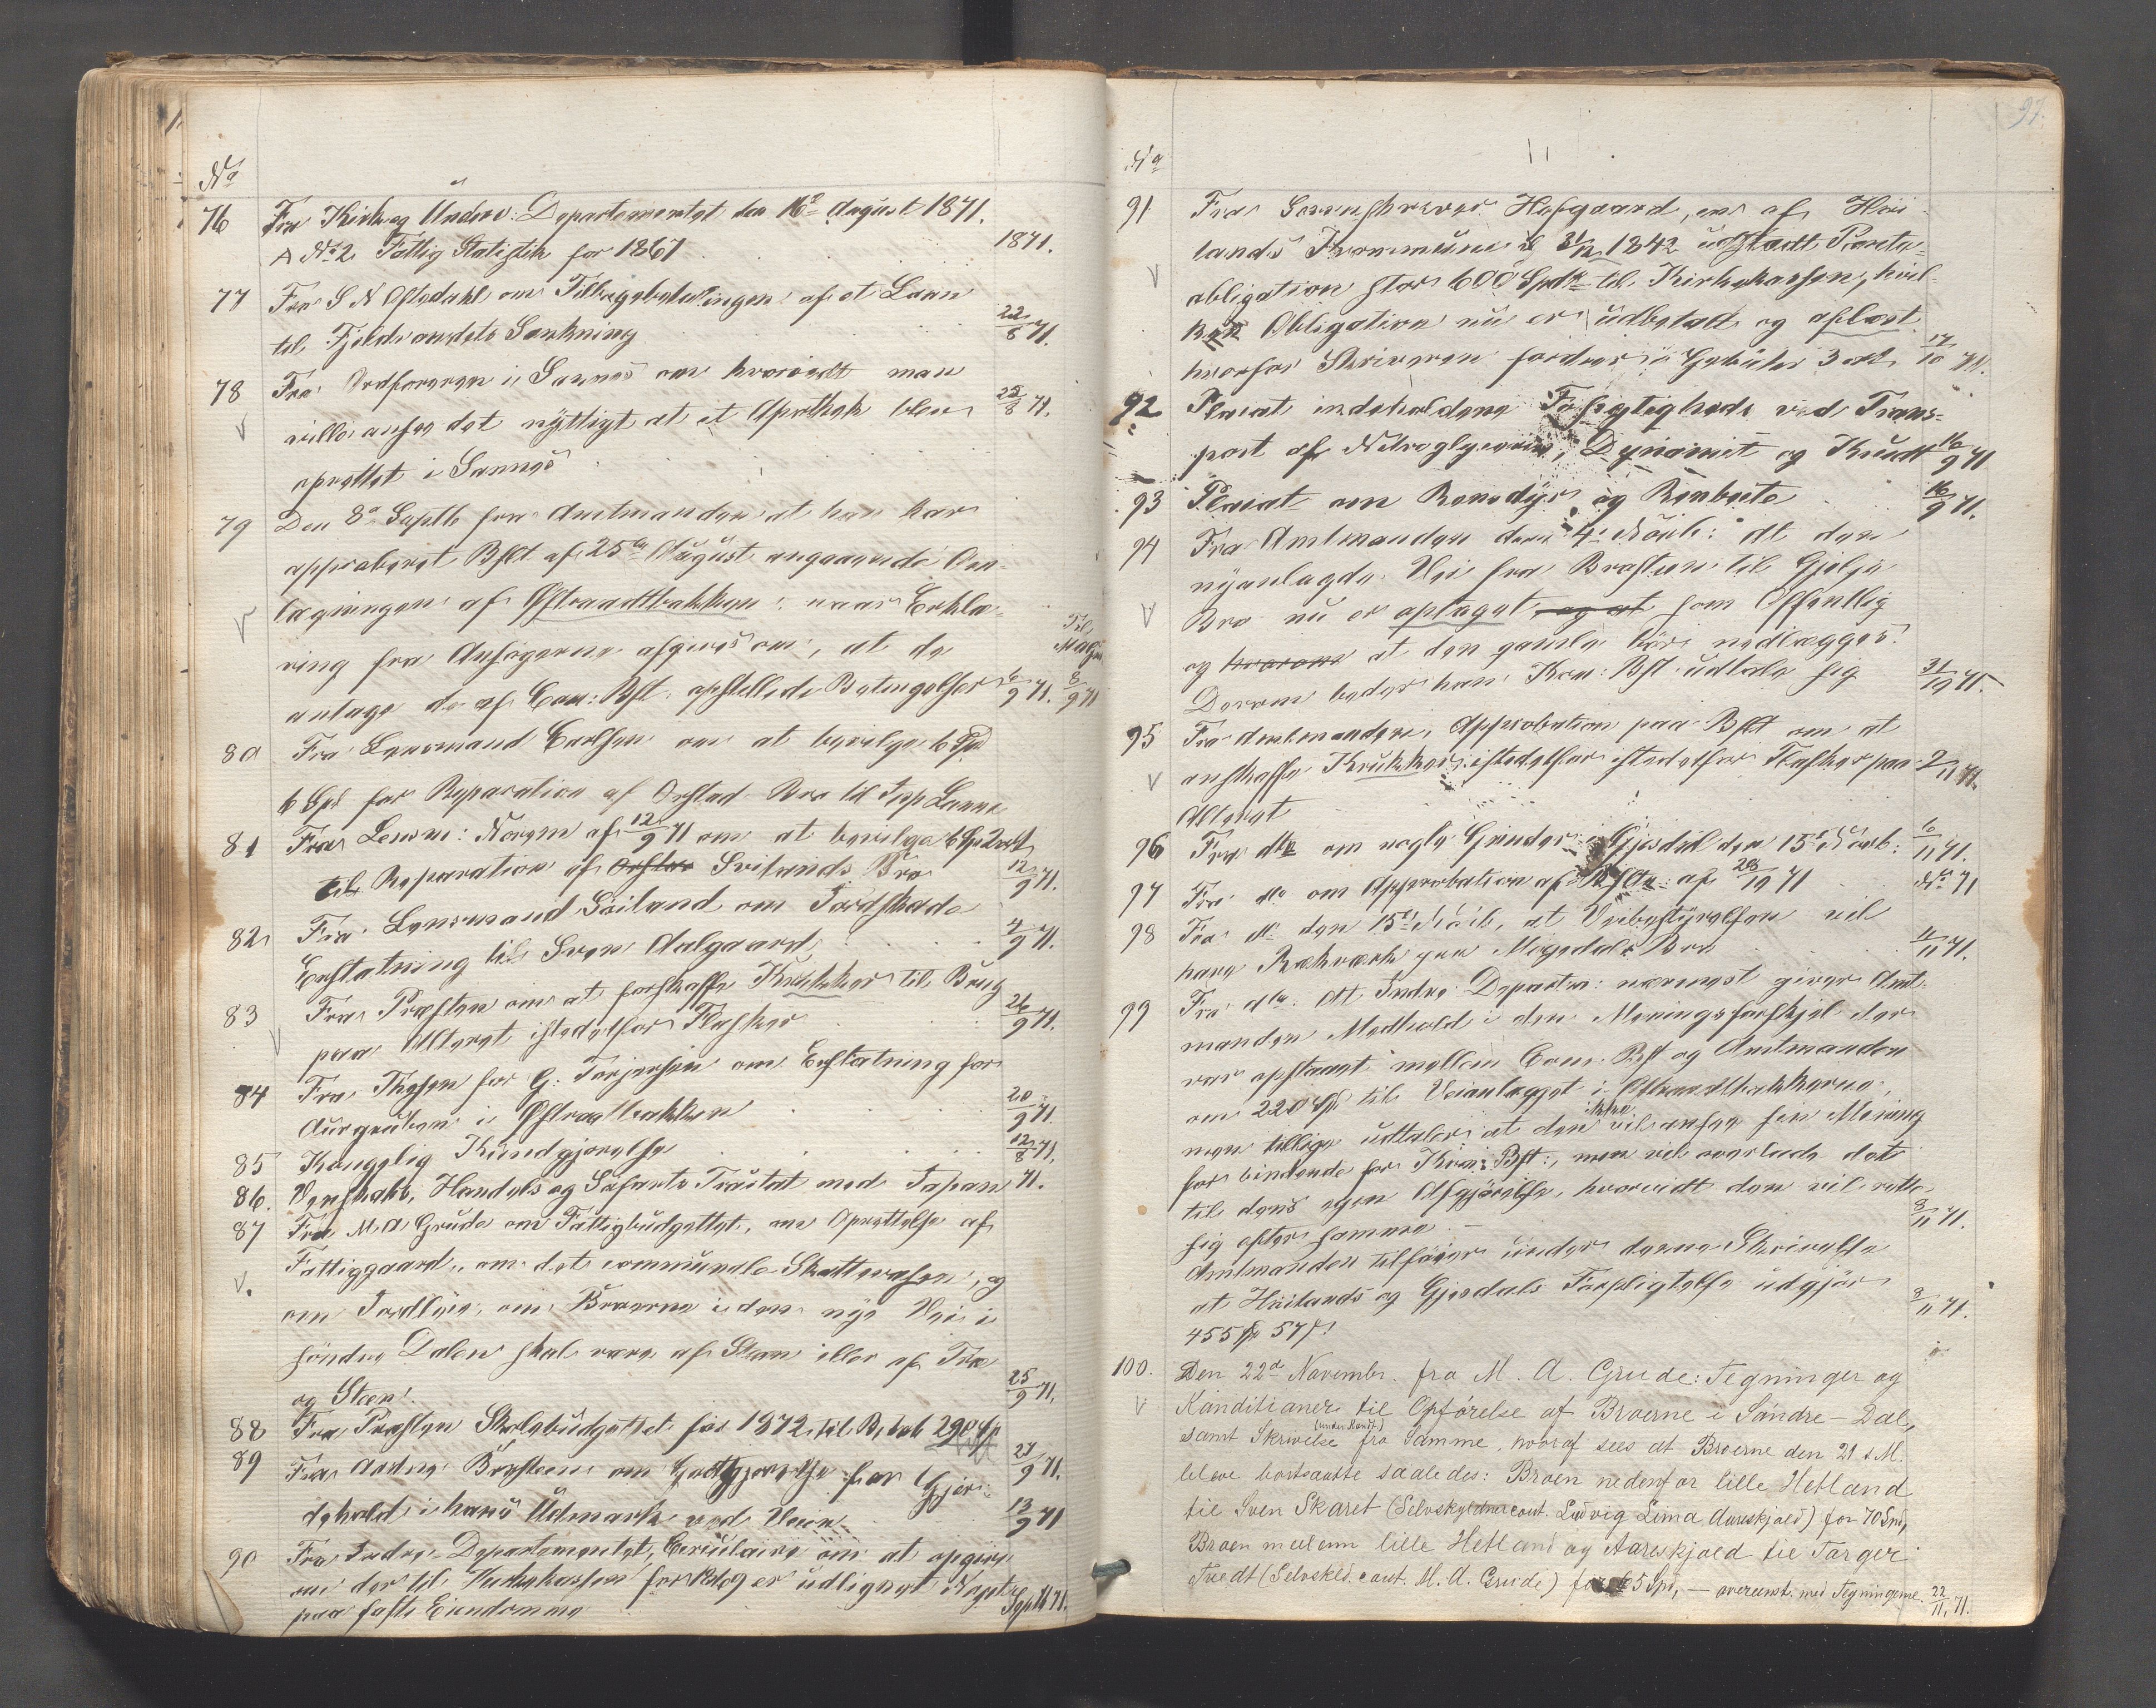 No
76 Fra Kirke og Underv: Departementet den 16de August 1871.
A No 2 Fattig Statistik for 1867 1871.
77 Fra S N Oftedahl om Tilbagebetalingen af et Laan
til Fjeldvandets Sænkning 22/8 71.
78 Fra Ordføreren i Sannes om hvorvidt man
ville ansee det nyttigt at et Apothek blev 25/8 71.
oprettet i Sannes
79 Den 8de Septb fra Amtmanden at han har
approberet Bslt af 25de August angaaende Om-
lægningen af Østraadtbakken: naar Erklæ-
ring fra Ansøgerne afgives om, at de
antage de af Com: Bst: opstillede Betingelser 6/9 71. 8/9 71
80 Fra Lensmand Carlsen om at bevilge 6 Spd
6 Spd for Reparation af Orstad Bro til Jpp Lunne
81 Fra Lensm: Noren af 12/9 71 om at bevilge 6 Sp 2 ort
til Reparation af Orstas Svilands Bro 12/9 71.
82 Fra Lensmand Søiland om Jordskade
Erstatning til Sven Aalgaard 4/9 71.
83 Fra Præsten om at forskaffe Krukker til Brug
paa Alteret istedetfor Flasker 26/9 71.
84 Fra Thesen for G: Torjersen om Erstatning for
Aurgruben i Østraatbakken 20/9 71.
85 Kongelig Kundgjørelse 12/8 71.
86. Venskabs, Handels og Søfarts Tractat med Japan 71.
87 Fra M. A Grude om Fattigbudgettet, om Oprettelse af
Fattiggaard, om det communale Skattevæsen, og
om Jordleie, om Broerne i den nye Vei i
søndre Dalen skal være af Steen eller af Træ
og Steen! 25/9 71.
88 Fra Præsten Skolebudgettet for 1872, til Beløb 290 Sp
89 Fra Aadne Bråsteen om Godtgjørelse for Gjer- 27/9 71.
dehold i hans Udmark ved Veien 13/9 71
90 Fra Indre-Departementet, Circulaire om at opgive
om der til Kirkekassen for 1869 er udlignet Noget
paa faste Eiendomme Sept 71.
97.
No
91 Fra Sorenskriver Hofgaard, en af Høi
lands Kommune d 31/12 1842 udstædt Panta-
obligation stor 600 Spd til Kirkekassen, hvil-
ken Obligation nu er udbetalt og aflæst
hvorfor Skriveren fordrer i Gebühr 3 ort 17/10 71.
92 Placat indeholdene Forsigtighed ved Trans-
port af Nitroglycerin, Dynamit og Krudt 16/9 71
93 Placat om Rensdyr og Renbeite 16/9 71.
94 Fra Amtmanden den 4de Novb: at den
nyanlagde Vei fra Brasteen til Gjelje
Bro nu er optaget og at som Offentlig
og hvorom at den gamle bør nedlægges.
Derom beder han Kom: Bst: udtale sig 31/10 71.
95 Fra Amtmanden, Approbation paa Bslt om at
anskaffe Krukker istedetfor istedetfor Flasker paa 2/11 71.
Alteret
96 Fra do om nogle Grinder i Gjesdal den 15de Novb: 6/11 71.
97 Fra do om Approbation af Bslt: af 28/10 71 do 71
98 Fra do den 15de Novb, at Veibestyrelsen vil
have Rækværk paa Mogedals Bro 11/11 71.
99 Fra do. At Indre Departm: nærmest giver Amt-
manden Medhold i den Meningsforskjel der
var opstaaet mellem Com: Bst og Amtmanden
om 220 Sp til Veianlægget i Østraadtbakkerne,
men tillige udtaler at den ikke vil ansee sin Mening
for bindende for Kom: Bst:, men vil overlade det
til dens egen Afgjørelse, hvorvidt den vil rette
sig efter samme. 8/11 71.
Amtmanden tilføier under denne Skrivelse
at Høilands og Gjesdals Forpligtelse udgjør 8/11 71.
455 Sp 57 s.
100. Den 22de Novembr. fra M. A. Grude: Tegninger og
Konditioner til Opførelse af Broerne i Søndre-Dal,
samt Skrivelse (under Haand) fra Samme, hvoraf sees at Broerne den 21 d. M.
bleve bortsatte saaledes: Broen nedenfor lille Hetland
til Sven Skaret (Selvskyldnercaut. Ludvig Lima Aureskjold) for 70 Spd,
Broen mellem lille Hetland og Aareskjold til Targer
Tvedt (Selvskld. caut. M. A. Grude) for 65 Spd, — overenst. med Tegningerne. 22/11. 71.